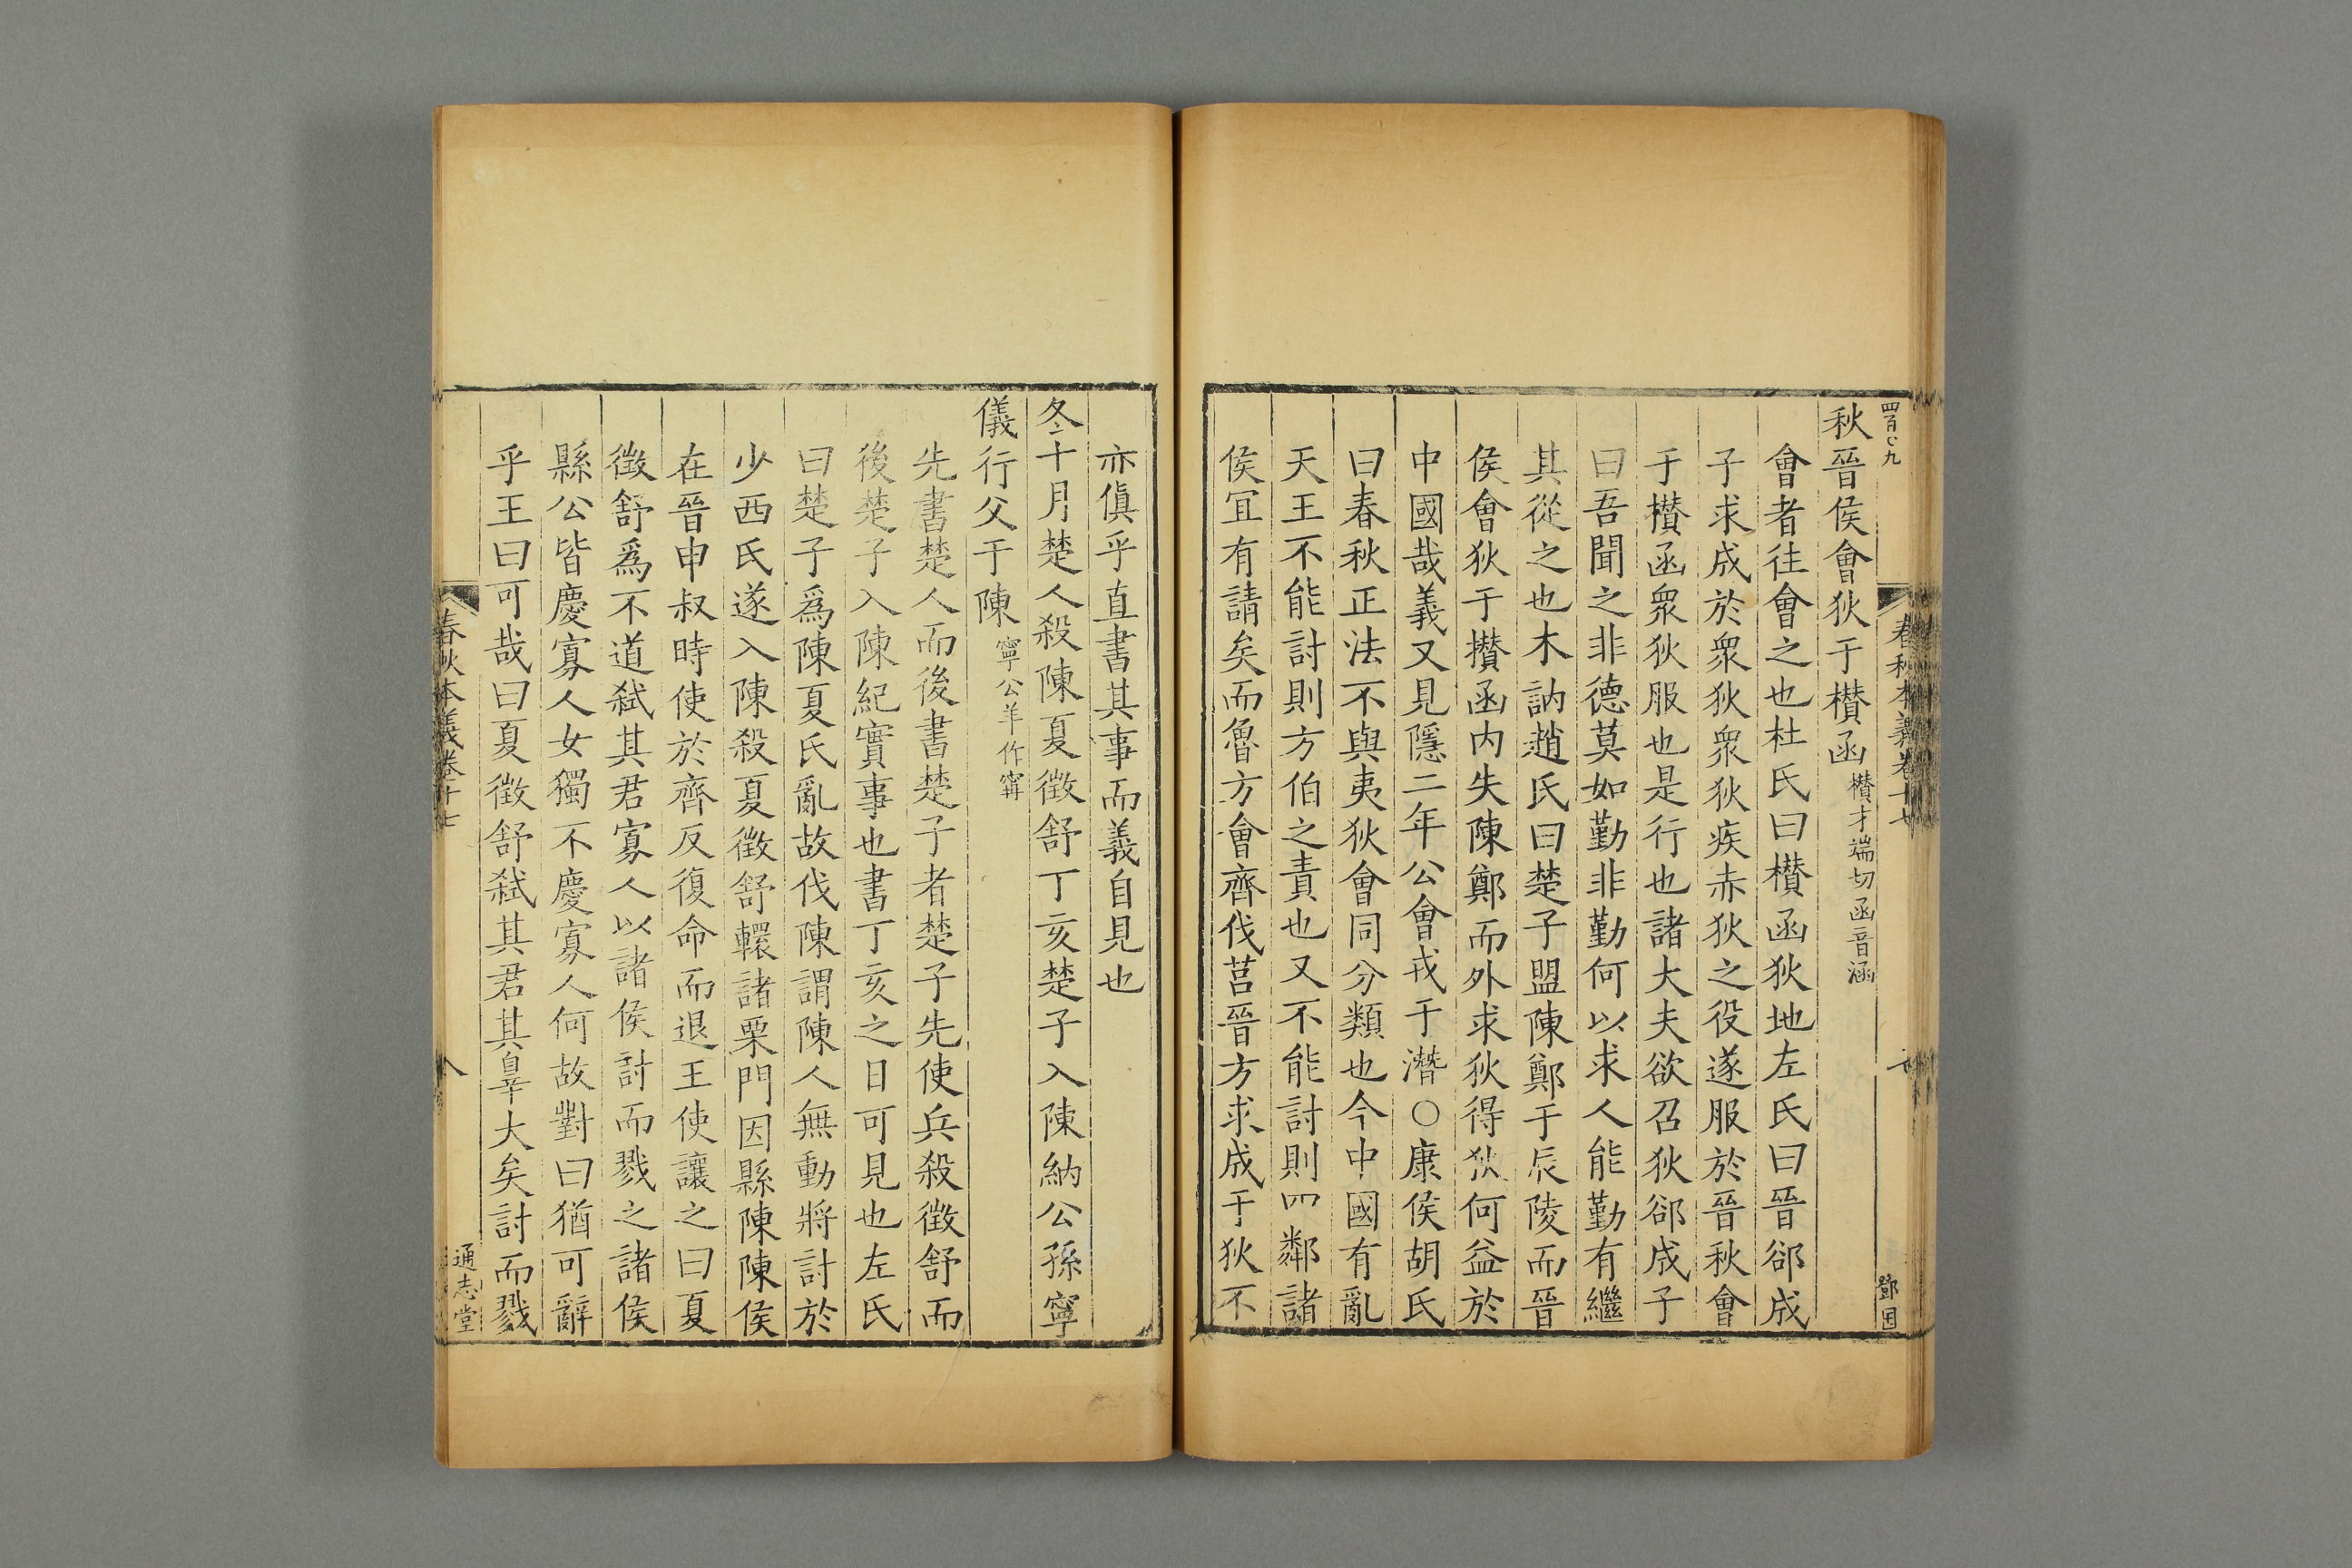 四百〇九
春秋本義卷十七
七
鄧国
秋晉侯會狄于欑函欑才端切函音涵
會者往會之也杜氏曰欑函狄地左氏曰晉郤成
子求成於衆狄衆狄疾赤狄之役遂服於晉秋會
于欑函衆狄服也是行也諸大夫欲召狄郤成子
曰吾聞之非德莫如勤非勤何以求人能勤有繼
其從之也木訥趙氏曰楚子盟陳鄭于辰陵而晉
侯會狄于欑函内失陳鄭而外求狄得狄何益於
中國哉義又見隱二年公會戎于潛○康侯胡氏
曰春秋正法不與夷狄會同分類也今中國有亂
天王不能討則方伯之責也又不能討則四鄰諸
侯冝有請矣而魯方會齊伐莒晉方求成于狄不
亦傎乎直書其事而義自見也
冬十月楚人殺陳夏徵舒丁亥楚子入陳納公孫寧
儀行父于陳寧公羊作甯
先書楚人而後書楚子者楚子先使兵殺徵舒而
後楚子入陳紀實事也書丁亥之日可見也左氏
曰楚子爲陳夏氏亂故伐陳謂陳人無動將討於
少西氏遂入陳殺夏徵舒轘諸栗門因縣陳陳侯
在晉申叔時使於齊反復命而退王使讓之曰夏
徵舒爲不道弑其君寡人以諸侯討而戮之諸侯
縣公皆慶寡人女獨不慶寡人何故對曰猶可辭
乎王曰可哉曰夏徵舒弑其君其辠大矣討而戮
春秋本義卷十七
八
通志堂